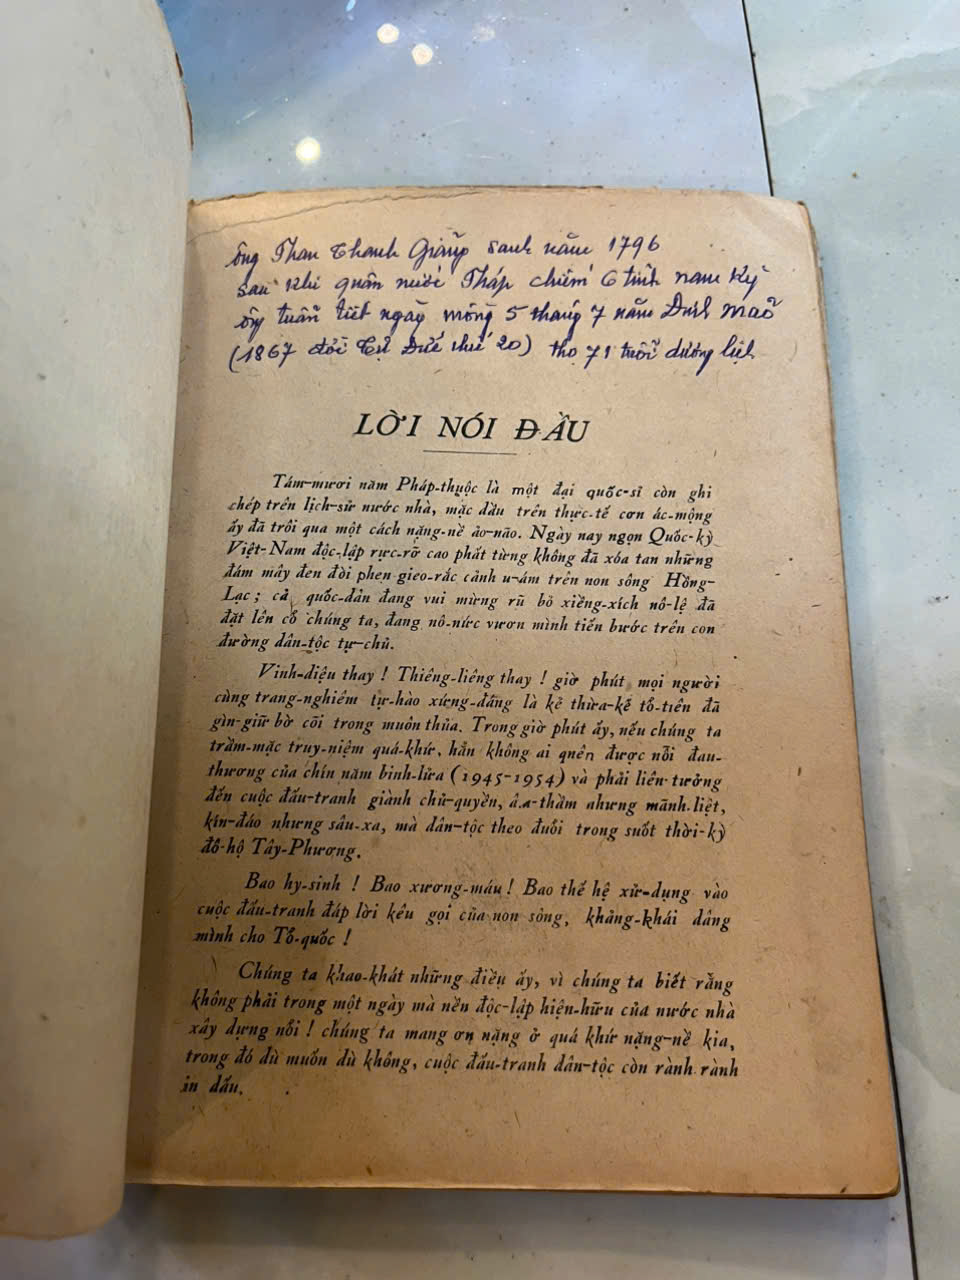 ông Phan Thanh Giảng sanh năm 1796
sau khi quân nước Pháp chiếm 6 tỉnh nam Kỳ
ông tuẫn tiết ngày mồng 5 tháng 7 năm Đinh Mão
(1867 đời Tự Đức thứ 20) thọ 71 tuổi dương lịch
LỜI NÓI ĐẦU
Tám-mươi năm Pháp-thuộc là một đại quốc-sỉ còn ghi
chép trên lịch-sử nước nhà, mặc dầu trên thực-tế cơn ác-mộng
ấy đã trôi qua một cách nặng-nề ảo-não. Ngày nay ngọn Quốc-kỳ
Việt-Nam độc-lập rực-rỡ cao phất từng không đã xóa tan những
đám mây đen đòi phen gieo-rắc cảnh u-ám trên non sông Hồng-
Lạc ; cả quốc-dân đang vui mừng rũ bỏ xiềng-xích nô-lệ đã
đặt lên cổ chúng ta, đang nô-nức vươn mình tiến bước trên con
đường dân-tộc tự-chủ.
Vinh-diệu thay ! Thiêng-liêng thay ! giờ phút mọi người
cùng trang-nghiêm tự-hào xứng-đáng là kẻ thừa-kế tổ-tiên đã
gìn-giữ bờ cõi trong muôn thủa. Trong giờ phút ấy, nếu chúng ta
trầm-mặc truy-niệm quá-khứ, hẳn không ai qnên được nỗi đau-
thương của chín năm binh-lửa (1945-1954) và phải liên-tưởng
đến cuộc đấu-tranh giành chủ-quyền, âm-thầm nhưng mãnh-liệt,
kín-đáo nhưng sâu-xa, mà dân-tộc theo đuổi trong suốt thời-kỳ
đô-hộ Tây-Phương.
Bao hy-sinh ! Bao xương-máu ! Bao thế hệ xử-dụng vào
cuộc đấu-tranh đáp lời kêu gọi của non sông, khảng-khái dâng
mình cho Tổ-quốc !
Chúng ta khao-khát những điều ấy, vì chúng ta biết rằng
không phải trong một ngày mà nền độc-lập hiện-hữu của nước nhà
xây dựng nổi ! chúng ta mang ơn nặng ở quá khứ nặng-nề kia,
trong đó dù muốn dù không, cuộc đấu-tranh dân-tộc còn rành rành
in dấu.